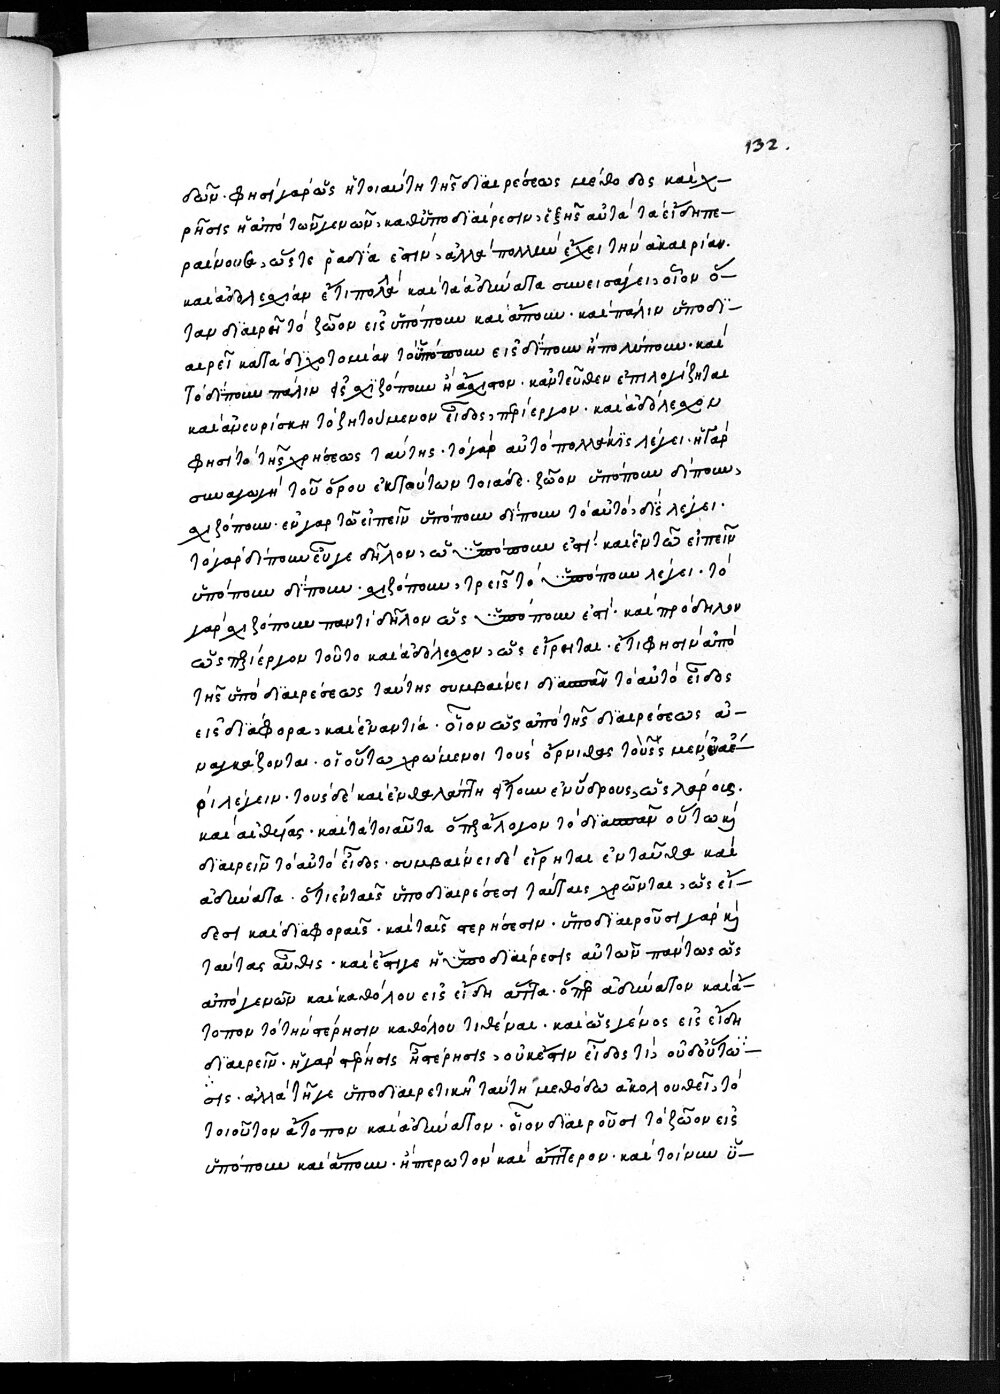 132.
δῶν. φησὶ γὰρ ὡς ἡ τοιαύτη τῆς διαιρέσεως μέθοδος καὶ χ-
ρῆσις ἡ ἀπὸ τῶν γενῶν, καθ' ὑποδιαίρεσιν, ἑξῆς αὐτὰ τὰ εἴδη πε-
ραίνουσα, ὥστε ῥαδία ἐστίν, ἀλλὰ πολλὴν ἔχει τὴν ἀκαιρίαν.
καὶ ἀδολεσχίαν ἔτι πολλὰ καὶ τὰ ἀδύνατα συνεισάγει, οἷον ὅ-
ταν διαιρῇ τὸ ζῶον εἰς ὑπόπουν καὶ ἄπουν. καὶ πάλιν ὑποδι-
αιρεῖ κατὰ διχοτομίαν τὸ ὑπόπουν εἰς δίπουν ἢ πολύπουν. καὶ
τὸ δίπουν πάλιν εἰς σχιζόπουν ἢ ἄσχιστον. κἀντεῦθεν ἐπιλογίζηται
καὶ ἀνευρίσκῃ τὸ ζητούμενον εἶδος, περίεργον. καὶ ἀδόλεσχον
φησὶ τὸ τῆς χρήσεως ταύτης. τὸ γὰρ αὐτὸ πολλάκις λέγει. ἡ γὰρ
συναγωγὴ τοῦ ὅρου ἐκ ταύτων τοιάδε. ζῶον ὑπόπουν δίπουν,
σχιζόπουν. ἐν γὰρ τῶ εἰπεῖν ὑπόπουν δίπουν τὸ αὐτὸ, δὶς λέγει.
τὸ γὰρ δίπουν εὖγε δῆλον, ὡς ὑπόπουν ἐστί. καὶ ἐν τῶ εἰπεῖν
ὑπόπουν δίπουν. σχιζόπουν, τρεῖς τὸ ὑπόπουν λέγει. τὸ
γὰρ σχιζόπουν παντὶ δῆλον ὡς ὑπόπουν ἐστί. καὶ πρόδηλον
ὡς περίεργον τοῦτο καὶ ἀδόλεσχον, ὡς εἴρηται. ἔτι φησὶν ἀπὸ
τῆς ὑποδιαιρέσεως ταύτης συμβαίνει διασπᾶν τὸ αὐτὸ εἶδος
εἰς διάφορα, καὶ ἐναντία. οἷον ὡς ἀπὸ τῆς διαιρέσεως ἀ-
ναγκάζονται. οἱ οὕτω χρώμενοι τοὺς ὄρνιθας τοὺς μὲν ἐναέ-
ρι λέγειν. τοὺς δὲ καὶ ἐν θαλάττη ἤτουν ἐνύδρους, ὡς λάρους.
καὶ αἰθυίας. καὶ τὰ τοιαῦτα ὅπερ ἄλογον τὸ διασπᾶν οὕτω καὶ
διαιρεῖν τὸ αὐτὸ εἶδος. συμβαίνει δὲ εἴρηται ἐνταῦθα καὶ
ἀδύνατα. ὅτι ἐν ταῖς ὑποδιαιρέσεσι ταύταις χρῶνται, ὡς εἴ-
δεσι καὶ διαφοραῖς. καὶ ταῖς στερήσεσιν. ὑποδιαιροῦσι γὰρ καὶ
ταύτας αὖθις. καὶ ἔστι γε ἡ ὑποδιαίρεσις αὐτῶν πάντως ὡς
ἀπὸ γενῶν καὶ καθόλου εἰς εἴδη αὐτά. ὅπερ ἀδύνατον καὶ ἄ-
τοπον τὸ τὴν στέρησιν καθόλου τιθέναι. καὶ ὡς γένος εἰς εἴδη
διαιρεῖν. ἡ γὰρ στέρησις ᾗ στέρησις, οὐκ ἔστιν εἶδος τί,
σις. ἀλλὰ τῇ γε ὑποδιαιρετικῇ ταύτη μεθόδω ἀκολουθεῖ, τὸ
τοιοῦτον ἄτοπον καὶ ἀδύνατον. οἷον διαιροῦσι τὸ ζῶον εἰς
ὑπόπουν καὶ ἄπουν. ἢ πτερωτὸν καὶ ἄπτερον. καὶ τοίνυν ὑ-